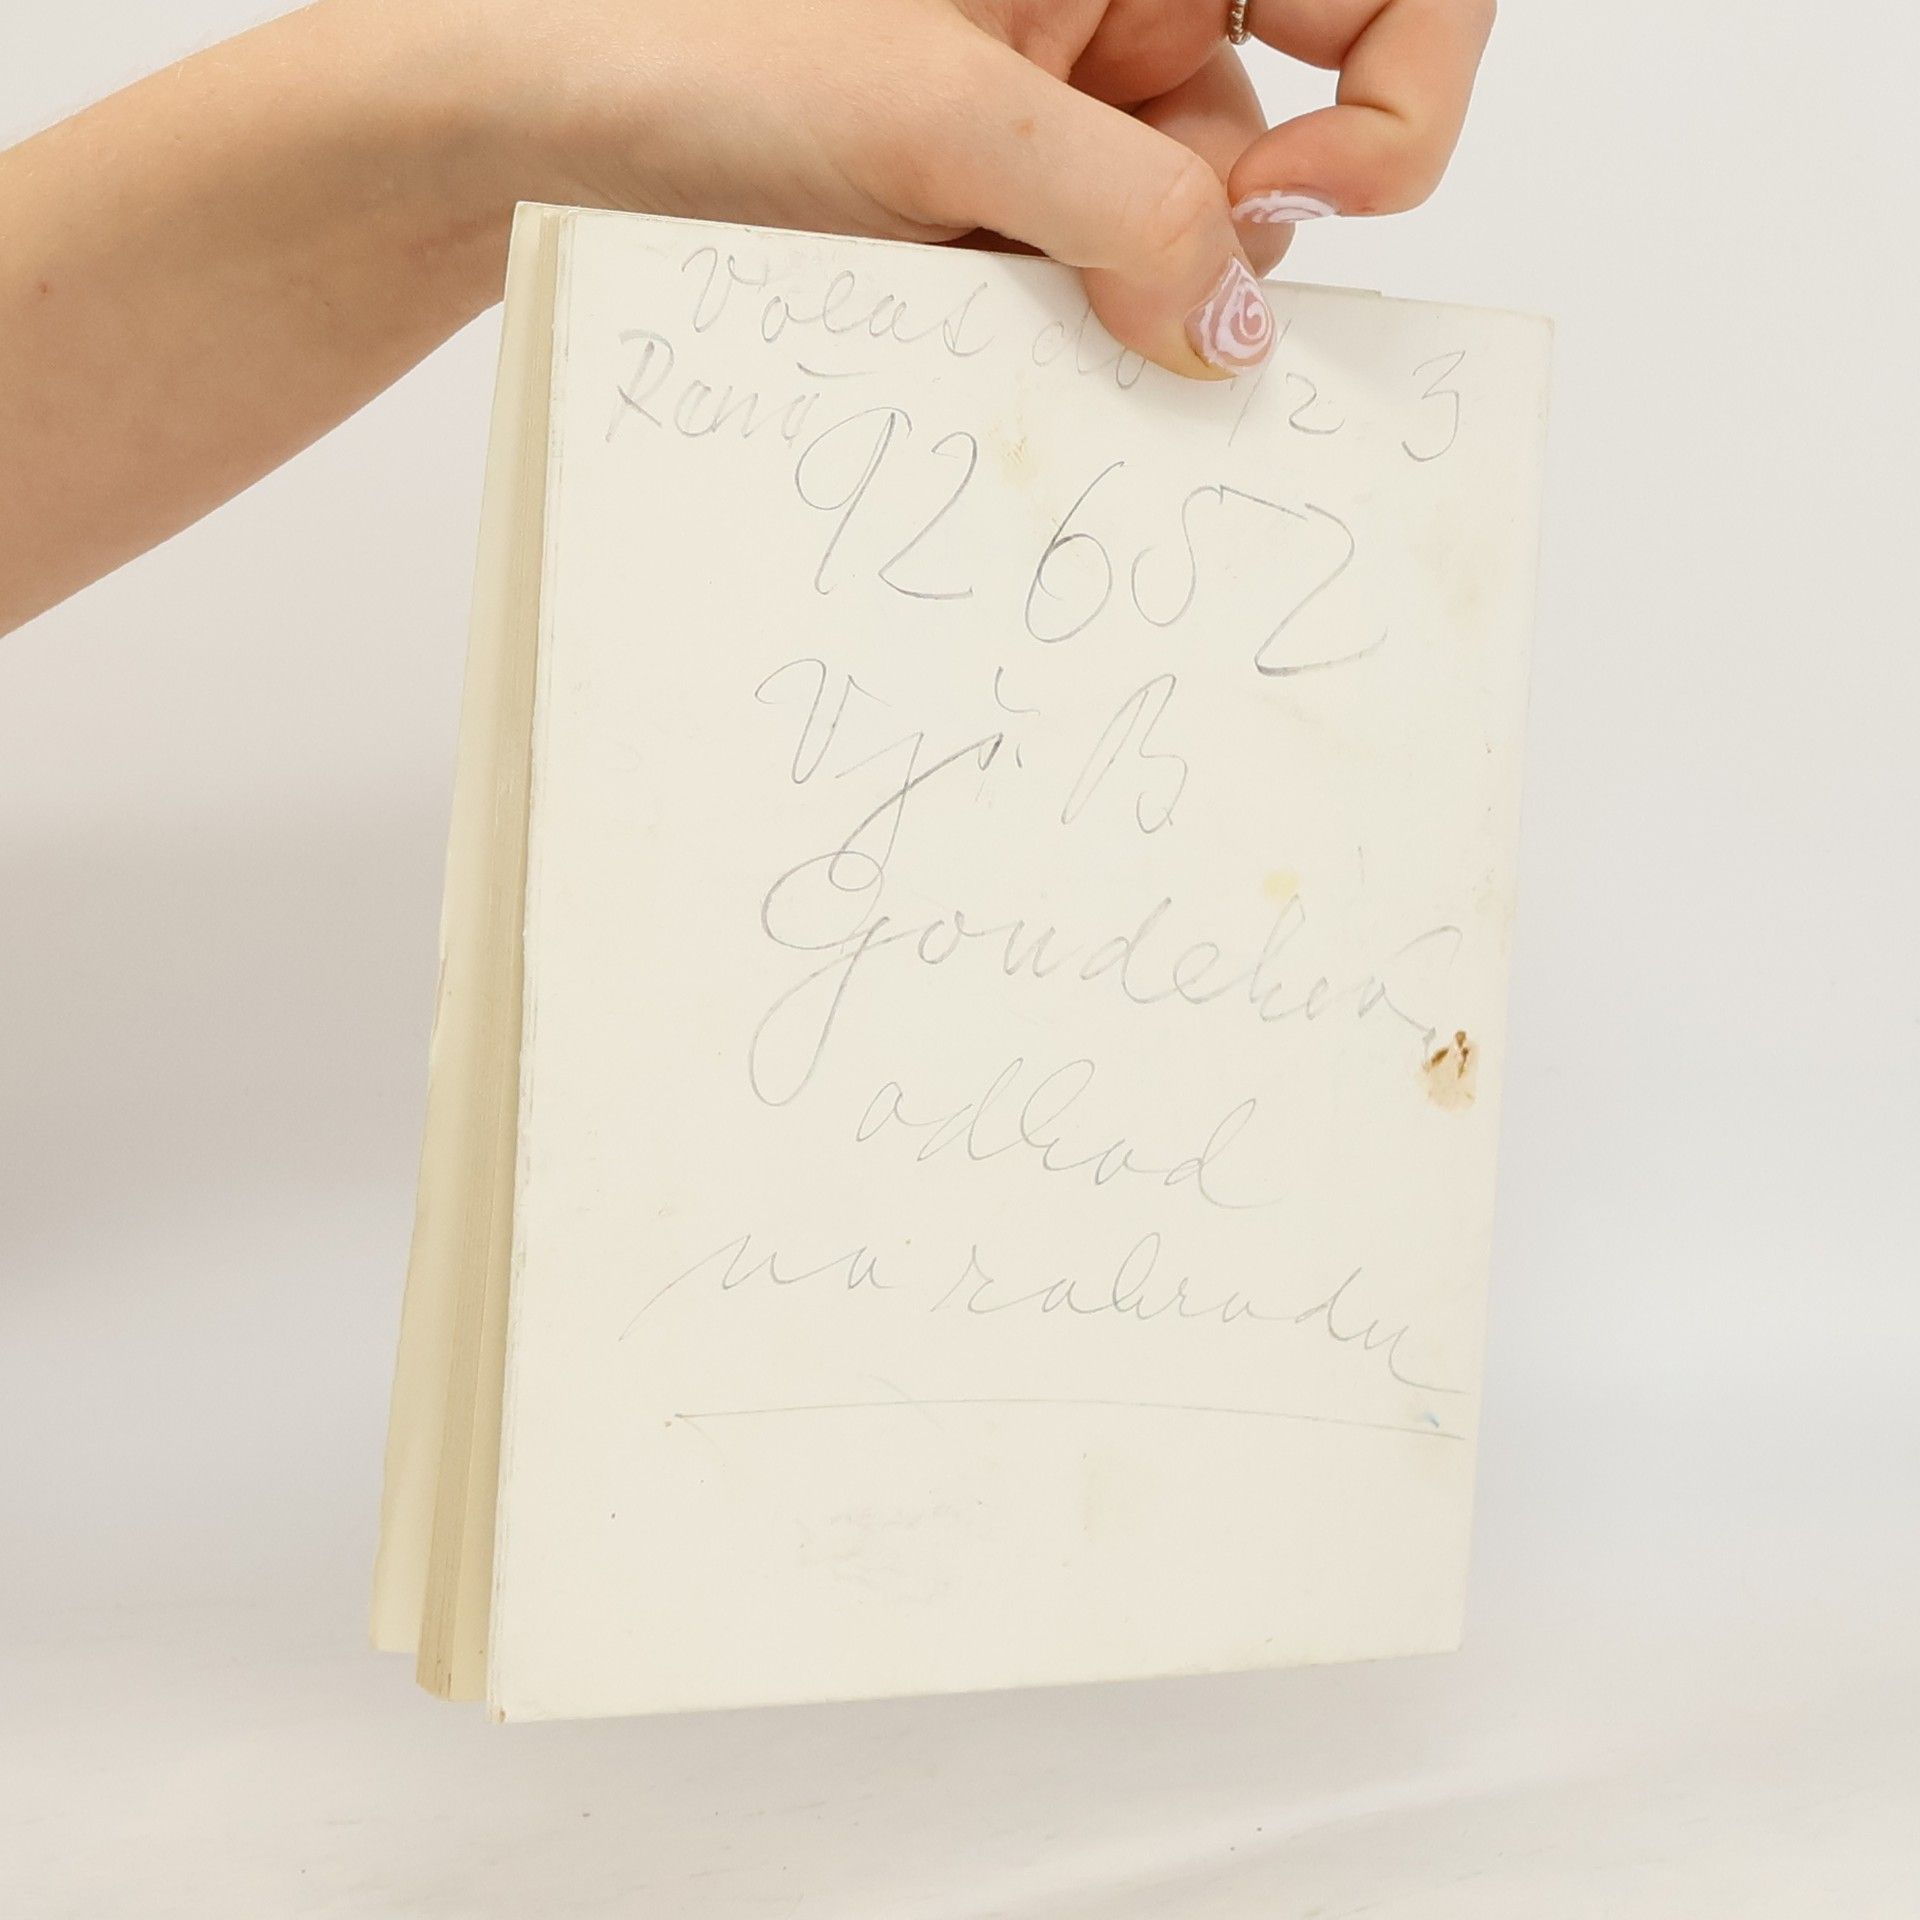 Volat do 1/2 3
Ranā
92 652
B
Goudelová
odhod
na zahradu